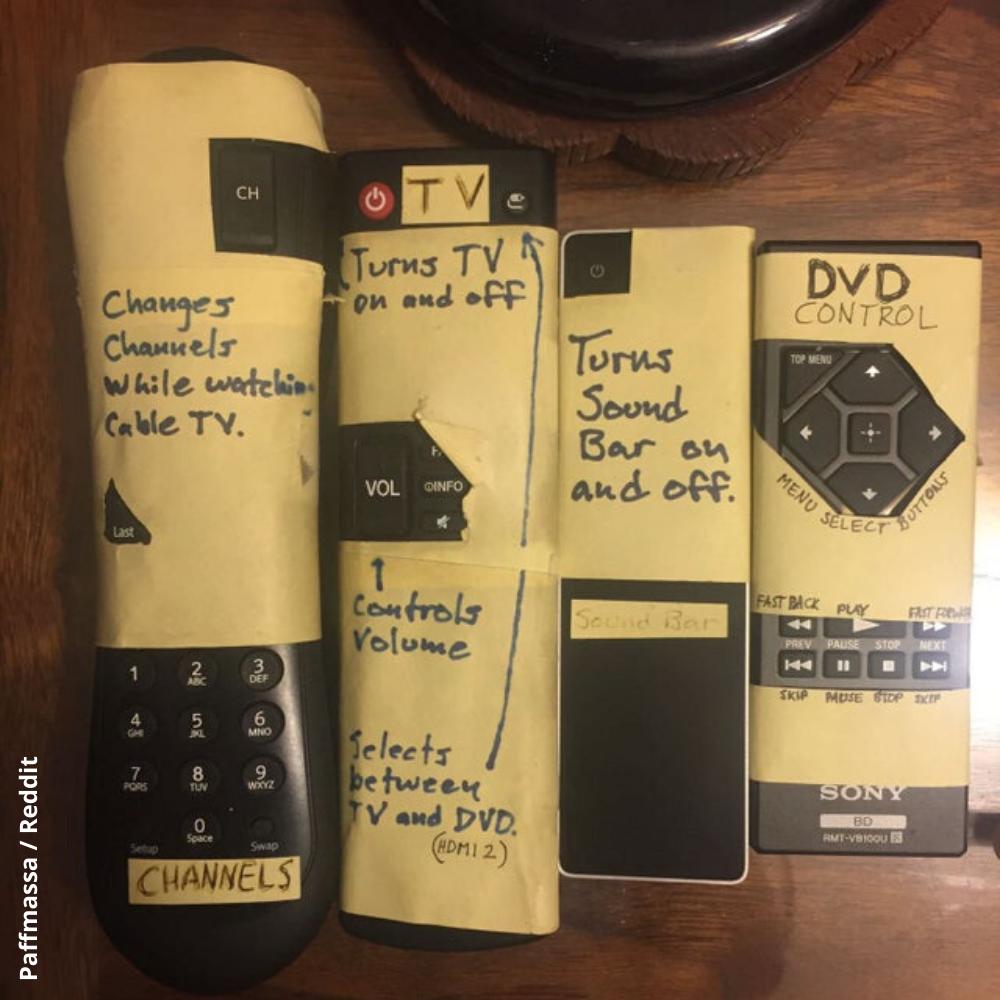 CH
Changes
Channels
While watching
Cable TV.
Last
1
2
ABC
3
DEF
4
GHI
5
JKL
6
MNO
7
PQRS
8
TUV
9
WXYZ
0
Space
Setup
Swap
CHANNELS
TV
Turns TV
on and off
VOL
INFO
Controls
Volume
Selects
between
TV and DVD.
(HDMI 2)
Turns
Sound
Bar on
and off.
Sound Bar
DVD
CONTROL
TOP MENU
MENU SELECT BUTTONS
FAST BACK PLAY FAST FORWARD
PREV PAUSE STOP NEXT
SKIP PAUSE STOP SKIP
SONY
BD
RMT-VB100U
Paffmassa / Reddit